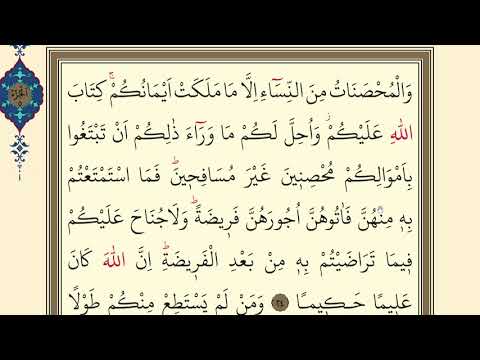 وَالْمُحْصَنَاتُ مِنَ النِّسَٓاءِ اِلَّا مَا مَلَكَتْ اَيْمَانُكُمْۚ كِتَابَ
اللّٰهِ عَلَيْكُمْۚ وَاُحِلَّ لَكُمْ مَا وَرَٓاءَ ذٰلِكُمْ اَنْ تَبْتَغُوا
بِاَمْوَالِكُمْ مُحْصِن۪ينَ غَيْرَ مُسَافِح۪ينَۜ فَمَا اسْتَمْتَعْتُمْ
بِه۪ مِنْهُنَّ فَاٰتُوهُنَّ اُجُورَهُنَّ فَر۪يضَةًۜ وَلَا جُنَاحَ عَلَيْكُمْ
ف۪يمَا تَرَاضَيْتُمْ بِه۪ مِنْ بَعْدِ الْفَر۪يضَةِۜ اِنَّ اللّٰهَ كَانَ
عَل۪يمًا حَك۪يمًا ٢٤ وَمَنْ لَمْ يَسْتَطِعْ مِنْكُمْ طَوْلًا